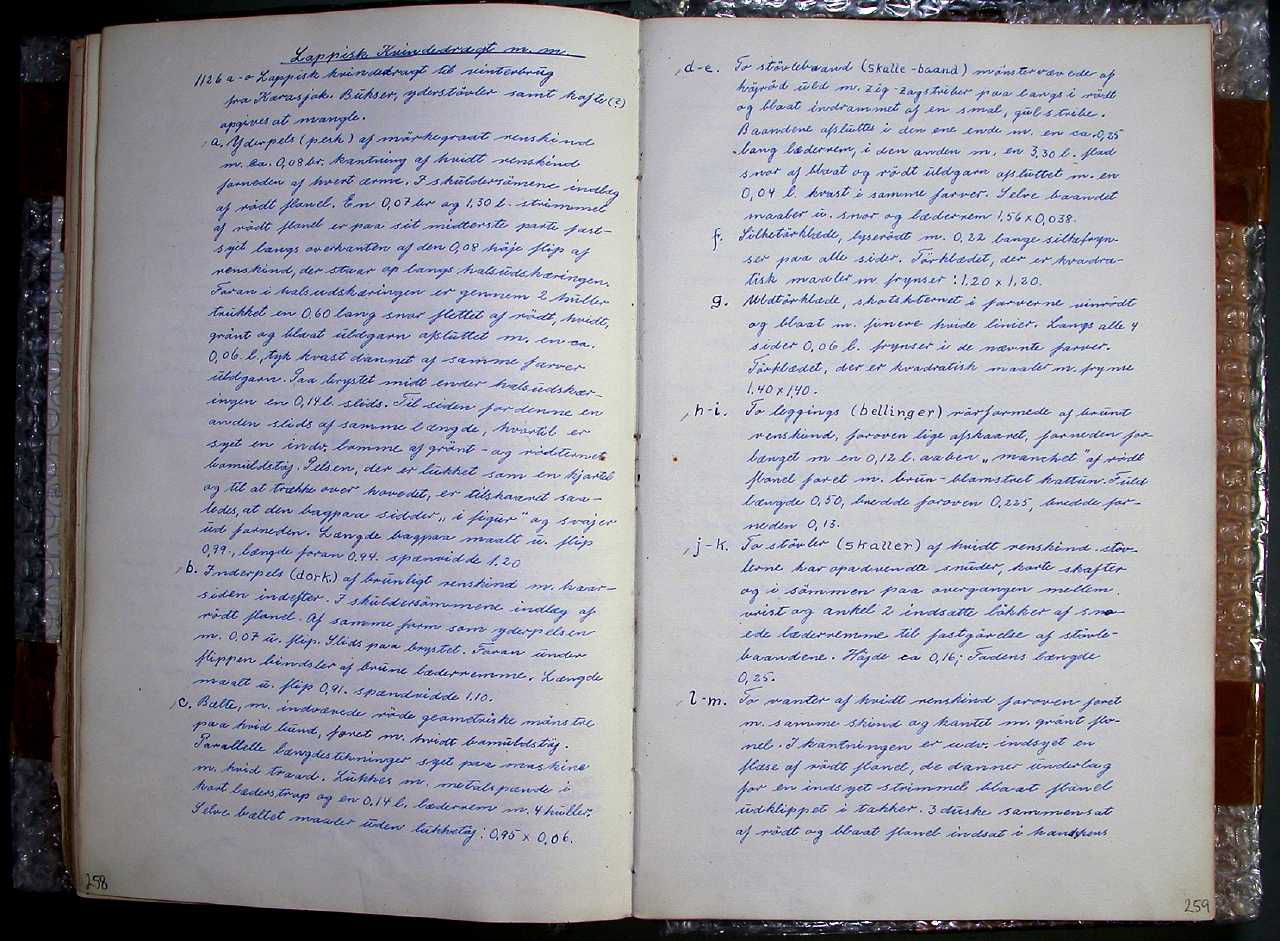 Lappisk Kvindedragt m. m.
1126 a-o Lappisk kvindedragt til vinterbrug
fra Karasjok. Bukser, yderstövler samt kofte (?)
opgives at mangle.
a. Yderpels (pesk) af mörkegraat renskind
m. ca. 0,08 br. kantning af hvidt renskind
forneden af hvert ærme. I skuldersömene indlæg
af rödt flonel. En 0,07 br og 1,30 l. strimmel
af rödt flonel er paa sit midterste parti fast-
syet langs overkanten af den 0,08 höje flip af
renskind, der staar op langs halsudskæringen.
Foran i halsudskæringen er gennem 2 huller
trukket en 0,60 lang snor flettet af rödt, hvidt,
grönt og blaat uldgarn afsluttet m. en ca.
0,06 l., tyk kvast dannet af samme farver
uldgarn. Paa brystet midt under halsudskær-
ingen en 0,14 l. slids. Til siden for denne en
anden slids af samme længde, hvortil er
syet en indv. lomme af grönt- og rödternet
bomuldstöj. Pelsen, der er lukket som en kjortel
og til at trække over hovedet, er tilskaaret saa-
ledes, at den bagpaa sidder „i figur" og svajer
ud forneden. Længde bagpaa maalt u. flip
0,99, længde foran 0,94. spænvidde 1.20
b. Inderpels (dork) af brunligt renskind m. haar-
siden indefter. I skuldersömmene indlæg af
rödt flonel. Af samme form som yderpelsen
m. 0,07 u. flip. Slids paa brystet. Foran under
flippen bindsler af brune læderremme. Længde
maalt u. flip 0,91. spændvidde 1.10.
c. Bælte, m. indvævede röde geometriske mönstre
paa hvid bund, foret m. hvidt bomuldstöj.
Parallelle længdestikninger syet paa maskine
m. hvid traad. Lukkes m. metalspænde i
kort læderstrop og en 0,14 l. læderrem m. 4 huller.
Selve bæltet maaler uden lukketöj: 0,95 x 0,06.
258
d-e. To stövlebaand (skalle-baand) mönstervævede af
höjröd uld m. zig-zagstriber paa langs i rödt
og blaat indrammet af en smal, gul stribe.
Baandene afsluttes i den ene ende m. en ca. 0,25
lang læderrem, i den anden m. en 3,30 l. flad
snor af blaat og rödt uldgarn afsluttet m. en
0,04 l. kvast i samme farver. Selve baandet
maaler u. snor og læderrem 1,56 x 0,038.
f. Silketörklæde, lyserödt m. 0,22 lange silkefryn-
ser paa alle sider. Törklædet, der er kvadra-
tisk maaler m. frynser: 1.20 x 1,20.
g. Uldtörklæde, skotskternet i farverne vinrödt
og blaat m. finere hvide linier. Langs alle 4
sider 0,06 l. frynser i de nævnte farver.
Törklædet, der er kvadratisk maaler m. frynse
1.40 x 1,40.
h-i. To leggings (bellinger) rörformede af brunt
renskind, foroven lige afskaaret, forneden for-
længet m en 0,12 l. aaben „manchet" af rödt
flonel foret m. brun-blomstret kattun. Fuld
længde 0,50, bredde foroven 0,225, bredde for-
neden 0,13.
j-k. To stövler (skaller) af hvidt renskind. stöv-
lerne har opadvendte snuder, korte skafter
og i sömmen paa overgangen mellem
vrist og ankel 2 indsatte lökker af sno-
ede læderremme til fastgörelse af stövle-
baandene. Höjde ca 0,16; Fodens længde
0,25.
l-m. To vanter af hvidt renskind foroven foret
m. samme skind og kantet m. grönt flo-
nel. I kantningen er udv. indsyet en
flæse af rödt flonel, de danner underlag
for en indsyet strimmel blaat flonel
udklippet i takker. 3 duske sammensat
af rödt og blaat flonel indsat i hanskens
259